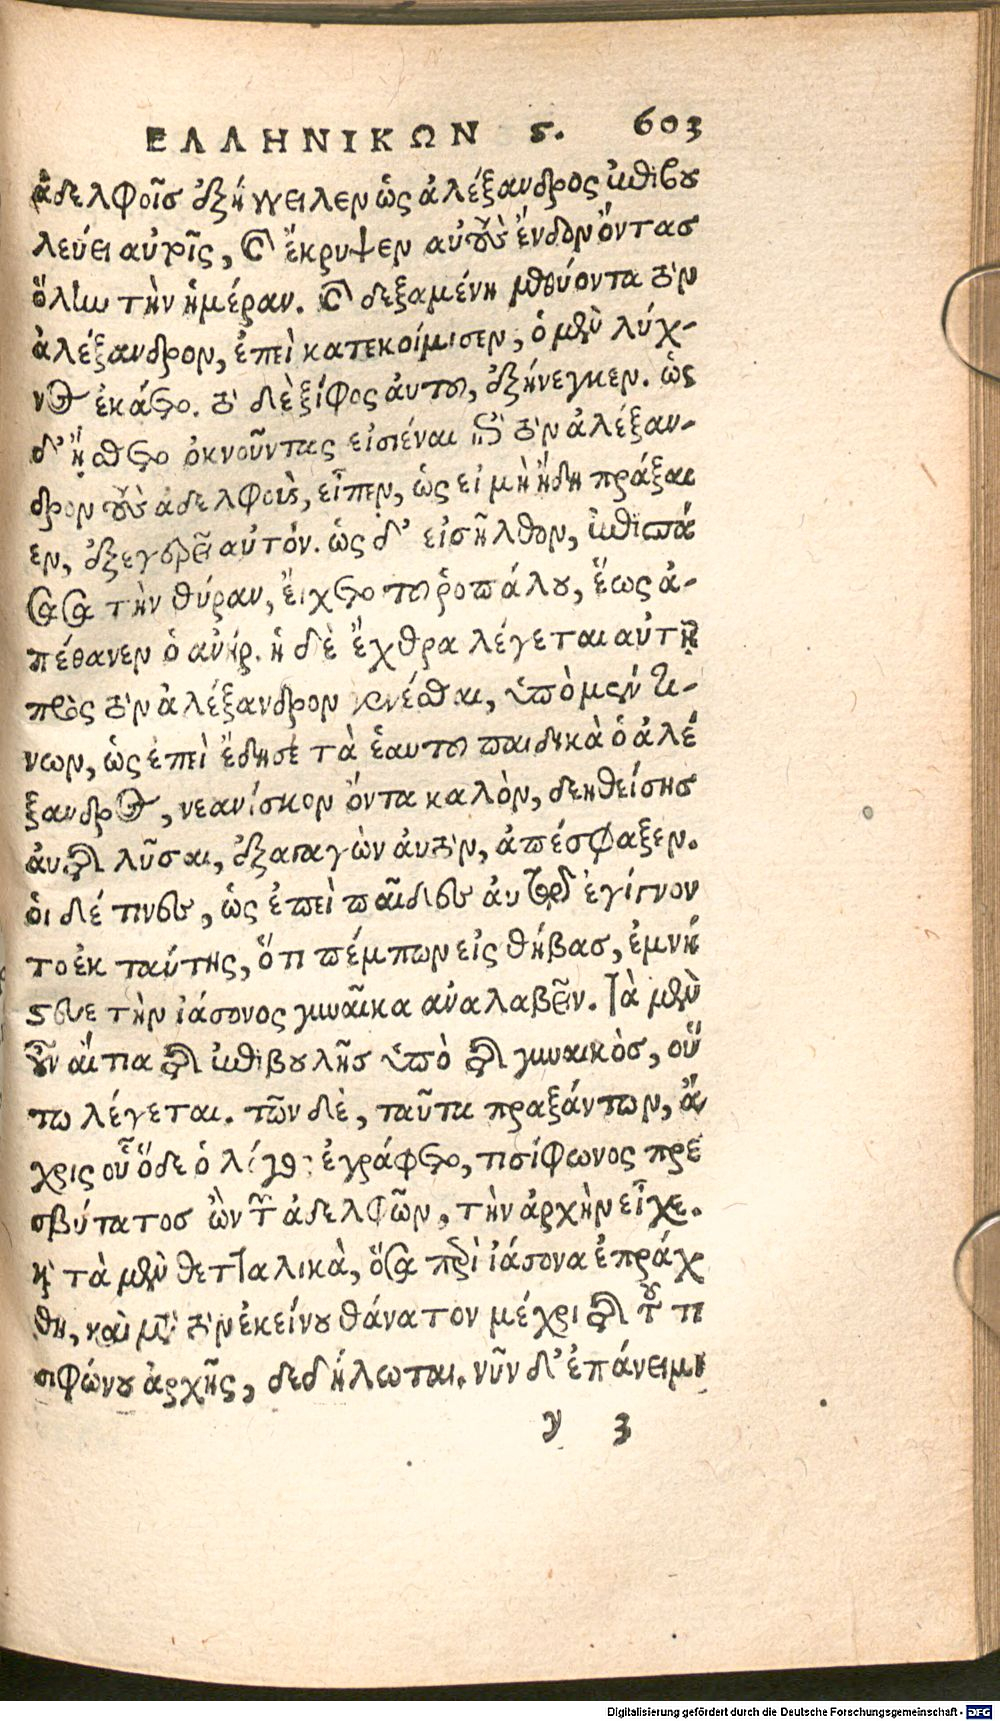 ΕΛΛΗΝΙΚΩΝ ϛ. 603
ἀδελφοῖσ ἐξήγγειλεν ὡς ἀλέξανδρος ἐπιβου
λεύει αὐτοῖς, καὶ ἔκρυψεν αὐτοὺς ἔνδον ὄντασ
ὅλην τὴν ἡμέραν. καὶ δεξαμένη μεθύοντα τὸν
ἀλέξανδρον, ἐπεὶ κατεκοίμισεν, ὁ μὲν λύχ-
νος ἐκάετο. τὸ δὲ ξίφος ἀυτοῦ, ἐξήνεγκεν. ὡς
δ' ᾔσθετο ὀκνοῦντας εἰσιέναι ἐπὶ τὸν ἀλέξαν-
δρον τοὺς ἀδελφοὺς, εἶπεν, ὡς εἰ μὴ ἤδη πράξαι
εν, ἐξεγερεῖ αὐτόν. ὡς δ' εἰσῆλθον, ἐπισπά
σασα τὴν θύραν, ἔιχετο τοῦ ῥοπάλου, ἕως ἀ-
πέθανεν ὁ ανήρ. ἡ δὲ ἔχθρα λέγεται αὐτῇ
πρὸς τὸν ἀλέξανδρον γενέσθαι, ὑπὸ μέν τι-
νων, ὡς ἐπεὶ ἔδησε τὰ ἑαυτοῦ παιδικὰ ὁ ἀλέ
ξανδρος, νεανίσκον ὄντα καλὸν, δεηθείσησ
ἀυτῆς λῦσαι, ἐξαγαγὼν ἀυτὸν, ἀπέσφαξεν.
ὁι δέ τινες, ὡς ἐπεὶ παῖδες ἀυτῷ ἐγίγνον
το ἐκ ταύτης, ὅτι πέμπων εἰς θήβασ, ἐμνή
στευε τὴν ἰάσονος γυναῖκα αναλαβεῖν. Τὰ μὲν
οὖν ἄιτια τῆς ἐπιβουλῆσ ὑπὸ τῆς γυναικὸσ, οὕ
τω λέγεται. τῶν δὲ, ταῦτα πραξάντων, ἄ
χρις οὗ ὅδε ὁ λόγος ἐγράφετο, τισίφωνος πρε
σβύτατοσ ὢν τῶν ἀδελφῶν, τὴν ἀρχὴν εἶχε.
καὶ τὰ μὲν θετταλικὰ, ὅσα περὶ ἰάσονα ἐπράχ
θη, καὶ μετὰ τὸν ἐκείνου θάνατον μέχρι τῆς τοῦ τι
σιφώνου ἀρχῆς, δεδήλωται. νῦν δ' ἐπάνειμι
y 3
Digitalisierung gefördert durch die Deutsche Forschungsgemeinschaft - DFG